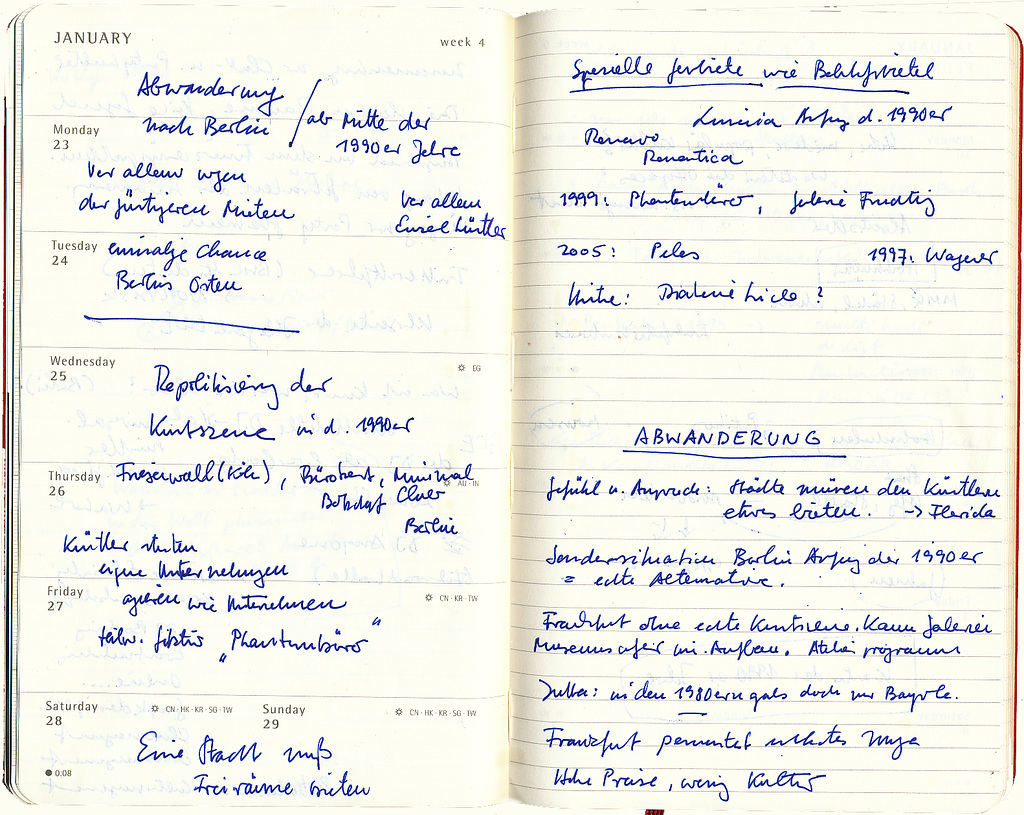 JANUARY
week 4
Abwanderung
nach Berlin / ab Mitte der
1990er Jahre
Monday
23
Vor allem wegen
der günstigeren Mieten
vor allem
Einzelkünstler
Tuesday
24
einmalige Chance
Berlins Osten
Wednesday
25
EG
Repolitisierung der
Kunstszene in d. 1990er
Thursday
26
AU · IN
Friesenwall (Köln), Bürobert, Minimal
Club
Berlin
Künstler
eigene Unternehmungen
Friday
27
CN · KR · TW
agieren wie Unternehmen
teilw. fiktiv „Phantombüro"
Saturday
28
CN · HK · KR · SG · TW
Sunday
29
CN · HK · KR · SG · TW
0:08
Eine Stadt muß
Freiräume bieten
Spezielle Gebiete wie
Anfang d. 1990er
Romantica
1999: Phantombüro, Galerie
2005: Peles
1997: Wagner
Mitte: ?
ABWANDERUNG
Gefühl u. Anspruch: Städte müssen den Künstlern
etwas bieten. -> Florida
Sondersituation Berlin Anfang der 1990er
= echte Alternative.
Frankfurt ohne echte Kunstszene. Kaum Galerien
Museumsufer im Aufbau. Atelierprogramm
in den 1980ern gabs doch nur
Frankfurt permanent schlechtes Image
Hohe Preise, wenig Kultur